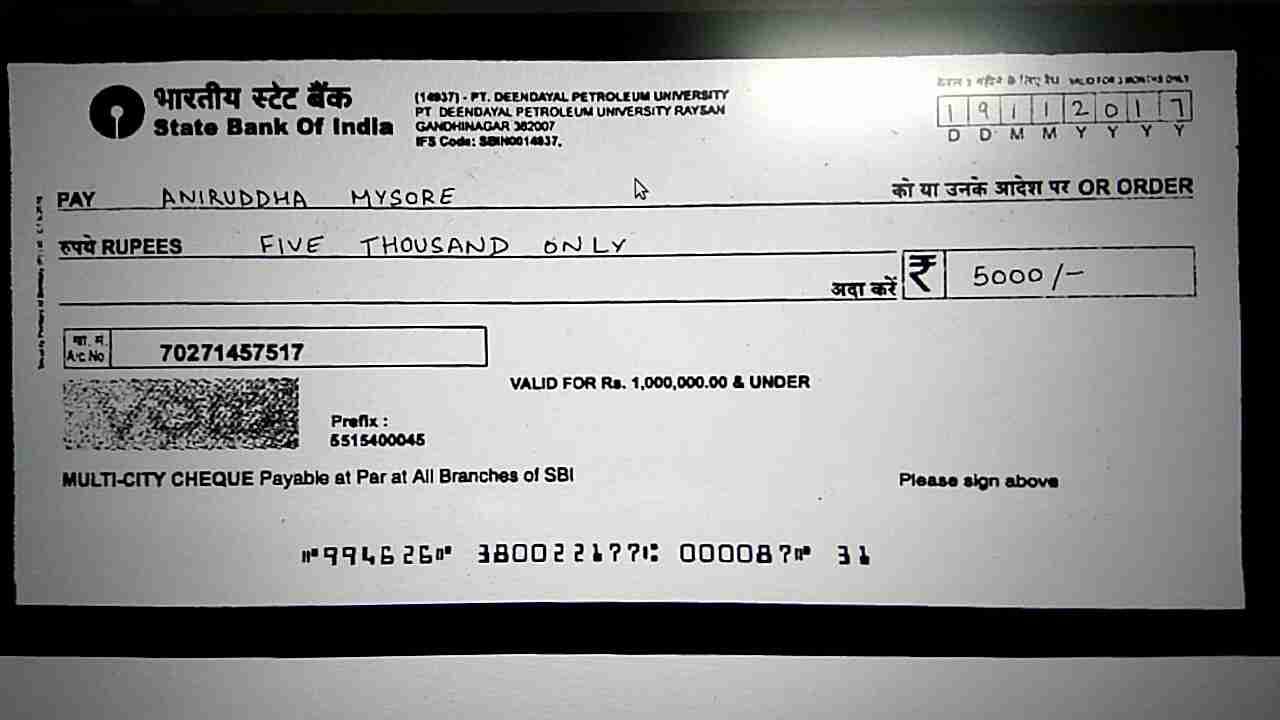 भारतीय स्टेट बैंक
State Bank Of India
(14937) - PT. DEENDAYAL PETROLEUM UNIVERSITY
PT DEENDAYAL PETROLEUM UNIVERSITY RAYSAN
GANDHINAGAR 382007
IFS Code: SBIN0014937.
केवल 3 महीने के लिए वैध VALID FOR 3 MONTHS ONLY
19112017
D D M M Y Y Y Y
PAY ANIRUDDHA MYSORE को या उनके आदेश पर OR ORDER
रुपये RUPEES FIVE THOUSAND ONLY
अदा करें ₹ 5000/-
खा. सं.
A/c No 70271457517
VALID FOR Rs. 1,000,000.00 & UNDER
Prefix :
5515400045
MULTI-CITY CHEQUE Payable at Par at All Branches of SBI
Please sign above
⑈994626⑈ 380022177⑆ 000087⑈ 31